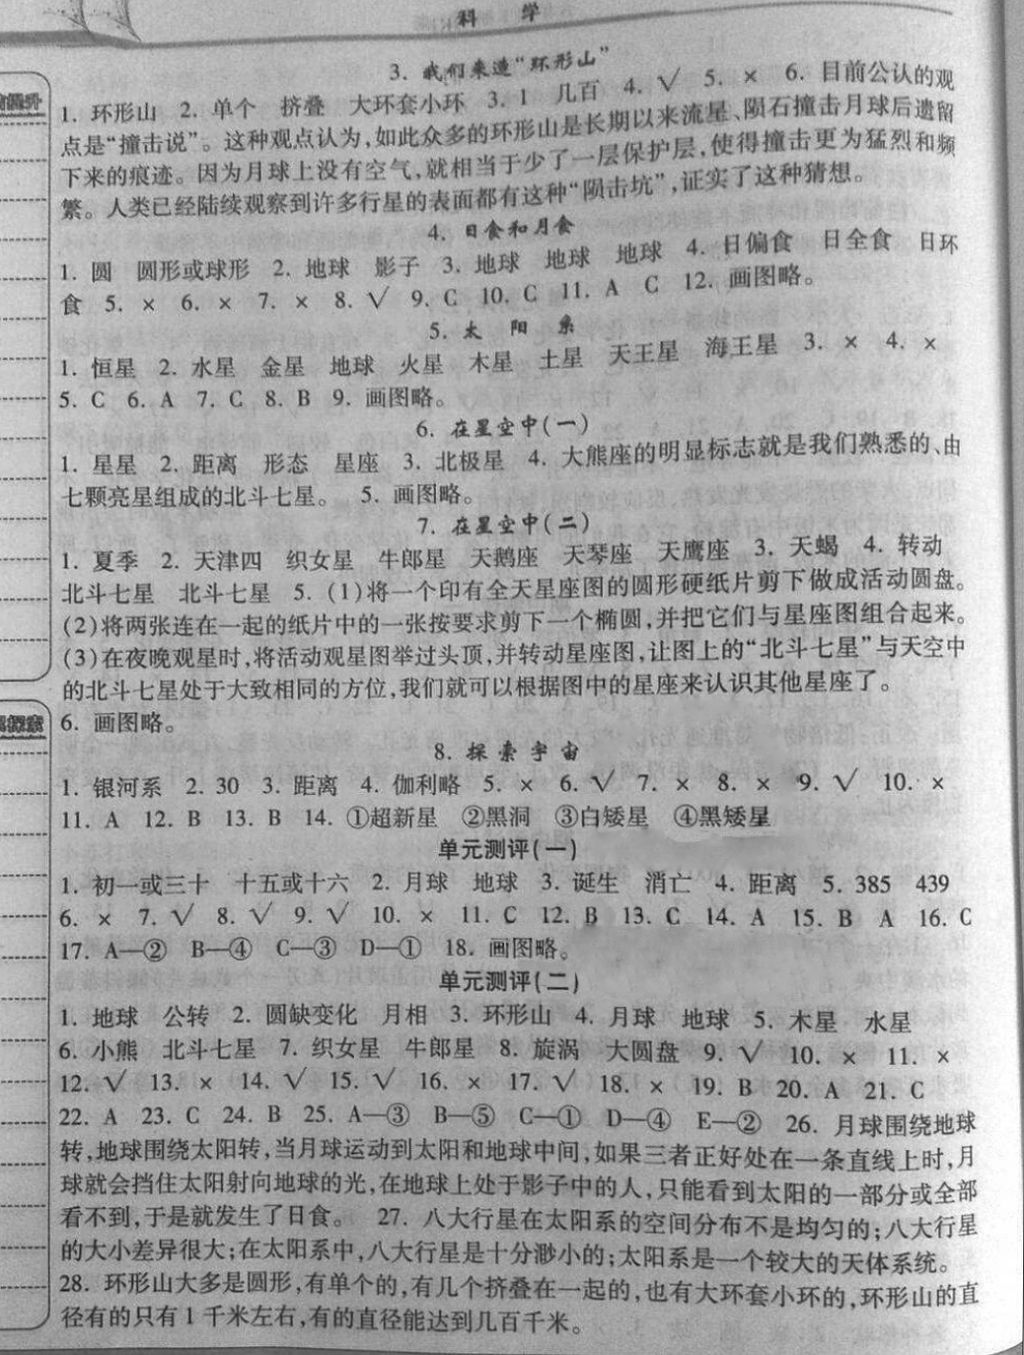 科 学
3. 我们来造“环形山”
1. 环形山 2. 单个 挤叠 大环套小环 3. 1 几百 4. √ 5. × 6. 目前公认的观
点是“撞击说”。这种观点认为,如此众多的环形山是长期以来流星、陨石撞击月球后遗留
下来的痕迹。因为月球上没有空气,就相当于少了一层保护层,使得撞击更为猛烈和频
繁。人类已经陆续观察到许多行星的表面都有这种“陨击坑”,证实了这种猜想。
4. 日食和月食
1. 圆 圆形或球形 2. 地球 影子 3. 地球 地球 地球 4. 日偏食 日全食 日环
食 5. × 6. × 7. × 8. √ 9. C 10. C 11. A C 12. 画图略。
5. 太 阳 系
1. 恒星 2. 水星 金星 地球 火星 木星 土星 天王星 海王星 3. × 4. ×
5. C 6. A 7. C 8. B 9. 画图略。
6. 在星空中(一)
1. 星星 2. 距离 形态 星座 3. 北极星 4. 大熊座的明显标志就是我们熟悉的、由
七颗亮星组成的北斗七星。 5. 画图略。
7. 在星空中(二)
1. 夏季 2. 天津四 织女星 牛郎星 天鹅座 天琴座 天鹰座 3. 天蝎 4. 转动
北斗七星 北斗七星 5. (1)将一个印有全天星座图的圆形硬纸片剪下做成活动圆盘。
(2)将两张连在一起的纸片中的一张按要求剪下一个椭圆,并把它们与星座图组合起来。
(3)在夜晚观星时,将活动观星图举过头顶,并转动星座图,让图上的“北斗七星”与天空中
的北斗七星处于大致相同的方位,我们就可以根据图中的星座来认识其他星座了。
6. 画图略。
8. 探 索 宇 宙
1. 银河系 2. 30 3. 距离 4. 伽利略 5. × 6. √ 7. × 8. × 9. √ 10. ×
11. A 12. B 13. B 14. ①超新星 ②黑洞 ③白矮星 ④黑矮星
单元测评(一)
1. 初一或三十 十五或十六 2. 月球 地球 3. 诞生 消亡 4. 距离 5. 385 439
6. × 7. √ 8. √ 9. √ 10. × 11. C 12. B 13. C 14. A 15. B A 16. C
17. A—② B—④ C—③ D—① 18. 画图略。
单元测评(二)
1. 地球 公转 2. 圆缺变化 月相 3. 环形山 4. 月球 地球 5. 木星 水星
6. 小熊 北斗七星 7. 织女星 牛郎星 8. 旋涡 大圆盘 9. √ 10. × 11. ×
12. √ 13. × 14. √ 15. √ 16. × 17. √ 18. × 19. B 20. A 21. C
22. A 23. C 24. B 25. A—③ B—⑤ C—① D—④ E—② 26. 月球围绕地球
转,地球围绕太阳转,当月球运动到太阳和地球中间,如果三者正好处在一条直线上时,月
球就会挡住太阳射向地球的光,在地球上处于影子中的人,只能看到太阳的一部分或全部
看不到,于是就发生了日食。 27. 八大行星在太阳系的空间分布不是均匀的;八大行星
的大小差异很大;在太阳系中,八大行星是十分渺小的;太阳系是一个较大的天体系统。
28. 环形山大多是圆形,有单个的,有几个挤叠在一起的,也有大环套小环的,环形山的直
径有的只有1千米左右,有的直径能达到几百千米。